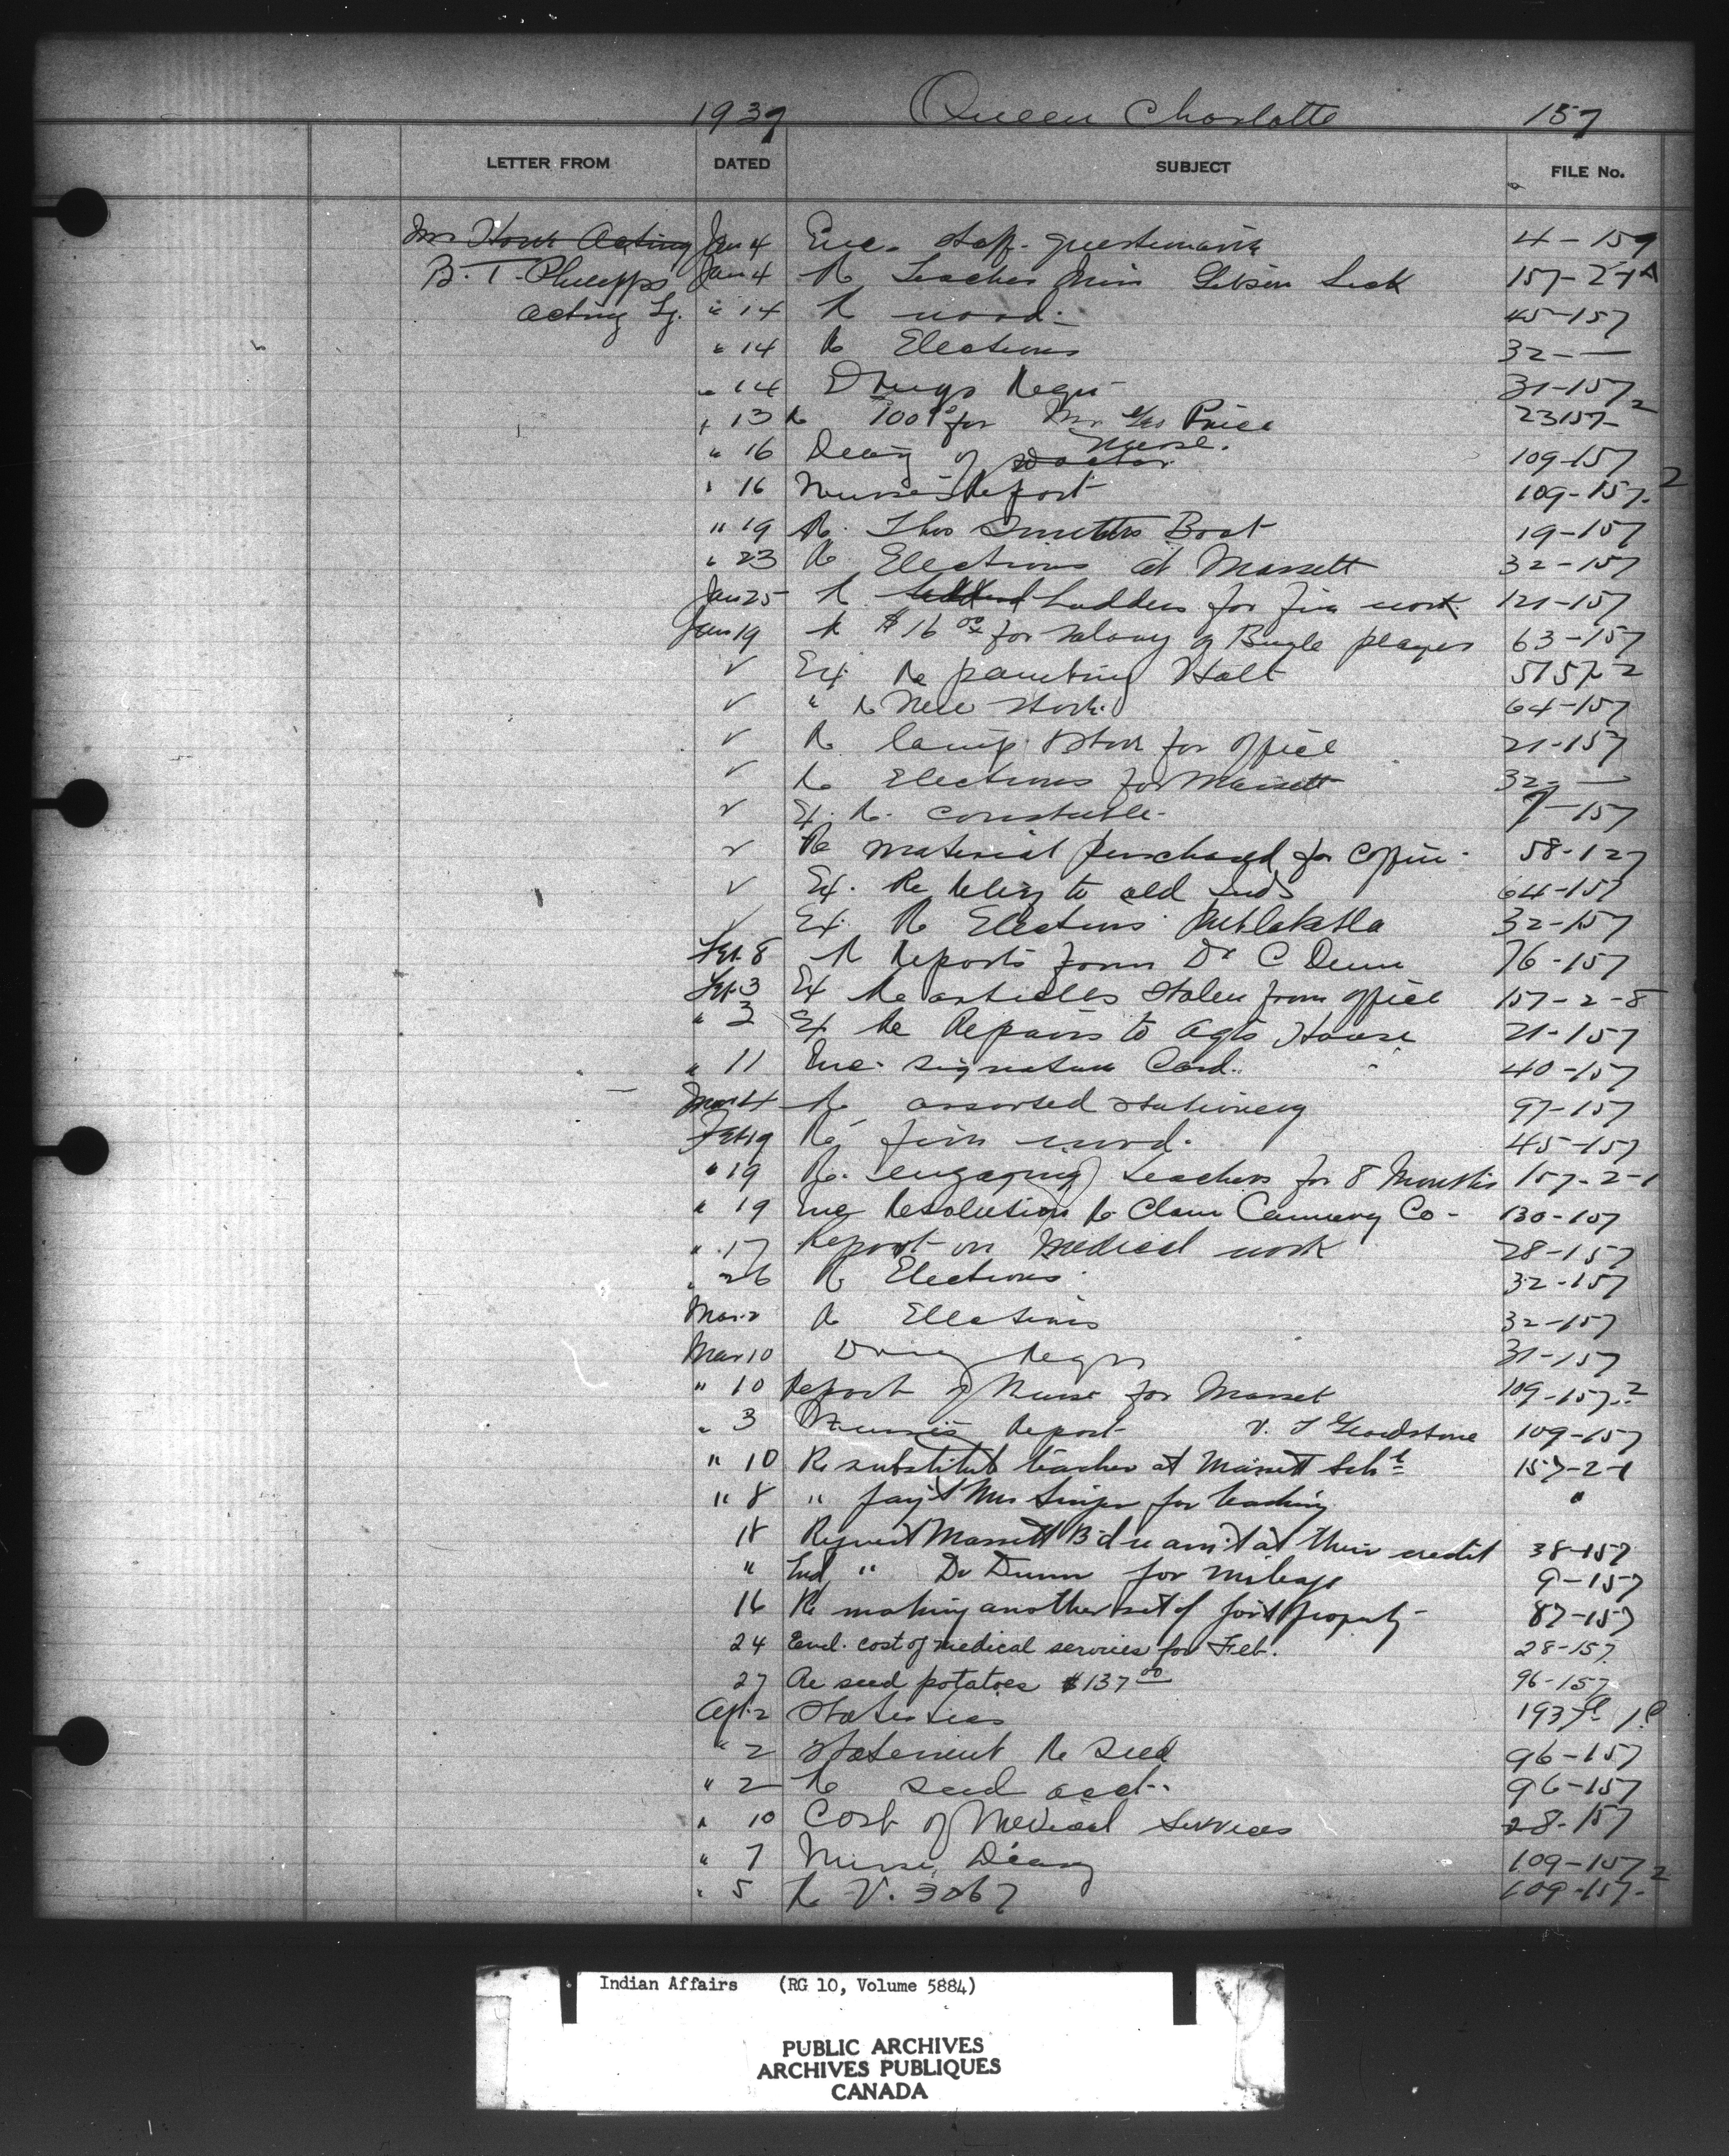 1937 Queen Charlotte 157
LETTER FROM DATED SUBJECT FILE No.
Acting Jan 4 Enc. Staff questionaire 4-157
B. T. Jan 4 Re Teacher Miss Sick 157-2-1A
Acting " 14 Re wood. 45-157
" 14 Re Elections 32- —
" 14 Drugs Requ 31-157
" 13 Re for Mr. Price 23157-2
" 16 Diary of Doctor Nurse. 109-157
" 16 Nurse's Report 109-157-2
" 19 Re. Thos Boat 19-157
" 23 Re Elections at Massett 32-157
Jan 25 Re Ladders for fire work 121-157
Jan 19 Re $16 00 for salary of Bugle player 63-157
✓ Ex. Re painting Hall 5157-2
✓ " Re New stock. 64-157
✓ Re lamp for office 21-157
✓ Re Elections for Massett 32- —
✓ Ex. Re. Constable. 7-157
✓ Re material purchased for Coffin. 58-127
✓ Ex. Re to old 64-157
✓ Ex. Re Elections Metlakatla 32-157
Feb. 8 Re Reports from Dr C Dunn 76-157
Feb. 3 Ex Re articles stolen from office 157-2-8
" 3 Ex. Re Repairs to Agts House 21-157
" 11 Enc. signature Card. 40-157
Mar 4 Re assorted stationery 97-157
Feb 19 Re fire wood. 45-157
" 19 Re. engaging teachers for 8 Months 157-2-1
" 19 Enc Resolution Re Clam Cannery Co - 130-157
" 17 Report on Medical work 28-157
" 26 Re Elections 32-157
Mar. 2 Re Elections 32-157
Mar 10 Drug Requ 31-157
" 10 Report of Nurse for Masset 109-157-2
" 3 Nurse's Report V. J 109-157
" 10 Re substitute teacher at Massett Sch. 157-2-1
" 8 " pay't Mrs for teaching "
18 Request Massett B'd re am't at their credit 38-157
" " Dr Dunn for mileage 9-157
16 Re making another set of property 87-157
24 Encl. cost of medical services for Feb. 28-157
27 Re seed potatoes $137 00 96-157
Apl. 2 Statistics
" 2 Statement Re Seed 96-157
" 2 Re seed acct. 96-157
" 10 Cost of Medical Services 28-157
" 7 Nurse Diary 109-157
" 5 Re V. 3067 109-157-2
Indian Affairs (RG 10, Volume 5884)
PUBLIC ARCHIVES
ARCHIVES PUBLIQUES
CANADA